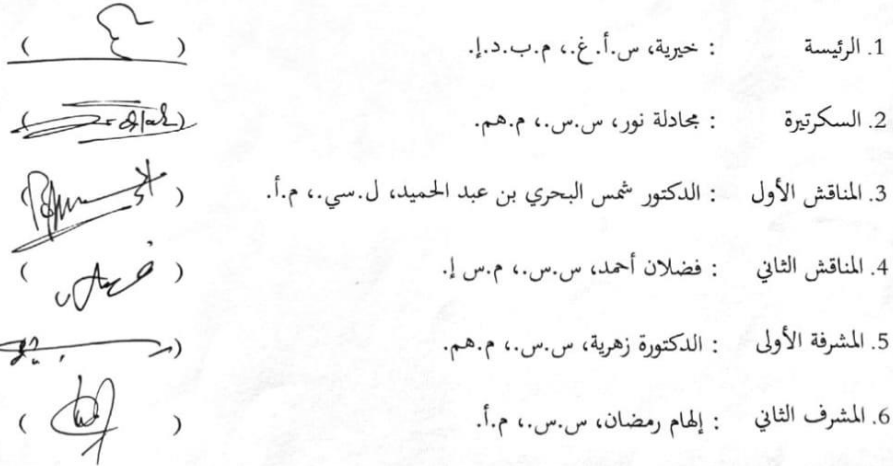 1. الرئيسة : خيرية، س.أ.غ.، م.ب.د.إ. ( )
2. السكرتيرة : مجادلة نور، س.س.، م.هم. ( )
3. المناقش الأول : الدكتور شمس البحري بن عبد الحميد، ل.سي.، م.أ. ( )
4. المناقش الثاني : فضلان أحمد، س.س.، م.س إ. ( )
5. المشرفة الأولى : الدكتورة زهرية، س.س.، م.هم. ( )
6. المشرف الثاني : إلهام رمضان، س.س.، م.أ. ( )